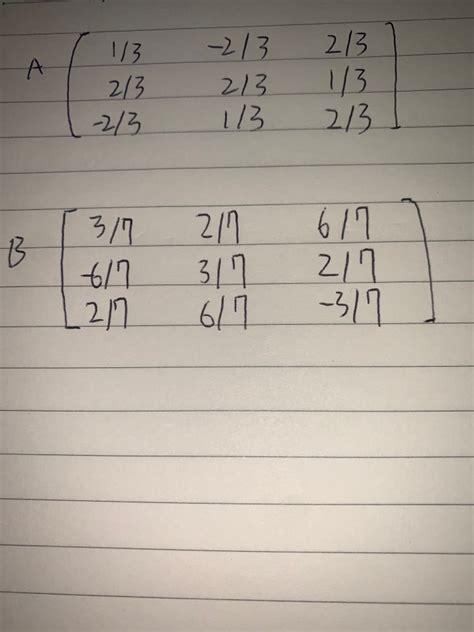 A
1/3 -2/3 2/3
2/3 2/3 1/3
-2/3 1/3 2/3
B
3/7 2/7 6/7
-6/7 3/7 2/7
2/7 6/7 -3/7